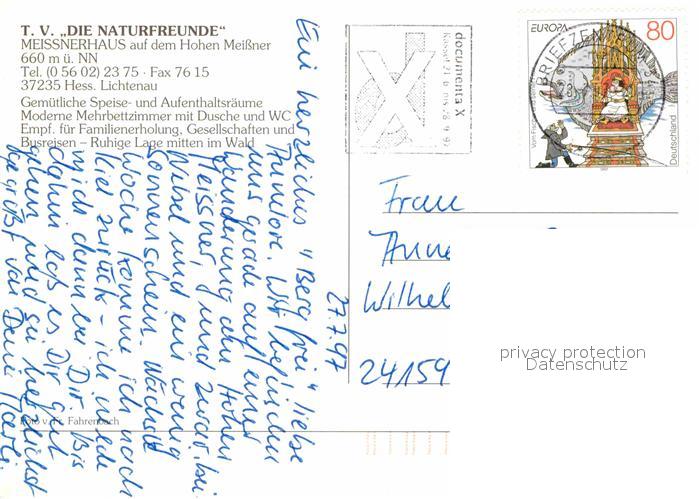 T. V. „DIE NATURFREUNDE“
MEISSNERHAUS auf dem Hohen Meißner
660 m ü. NN
Tel. (0 56 02) 23 75 · Fax 76 15
37235 Hess. Lichtenau
Gemütliche Speise- und Aufenthaltsräume
Moderne Mehrbettzimmer mit Dusche und WC
Empf. für Familienerholung, Gesellschaften und
Busreisen – Ruhige Lage mitten im Wald
27.7.97
Ein herzliches "Berg frei" liebe
Annlore. Wir befinden
uns gerade auf einer
Wanderung am Hohen
Meissner, und zwar bei
Nebel und ein wenig
Sonnenschein. Nächste
Woche komme ich nach
Kiel zurück - ich melde
mich dann bei Dir. Bis
dann laß es Dir gut
gehen und sei herzlichst
gegrüßt von Deine
Foto v. Fr. Fahrenbach
documenta X
Kassel 21. 6. bis 28. 9. 97
X
EUROPA
80
Deutschland
BRIEFZENTRUM
Frau
Anne
Wilhel
24159
privacy protection
Datenschutz